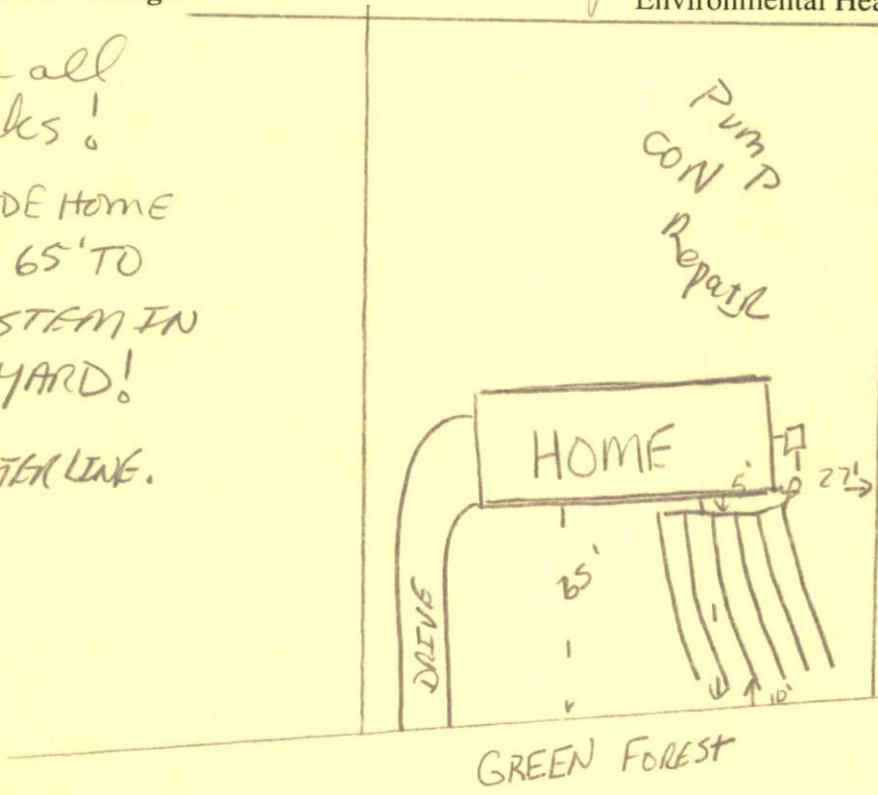 Environmental Hea
all
ks!
DE HOME
65' TO
STEM IN
YARD!
TERLINE.
PUMP
CON
RepaIR
HOME
5'
27'
65'
DRIVE
10'
GREEN FOREST